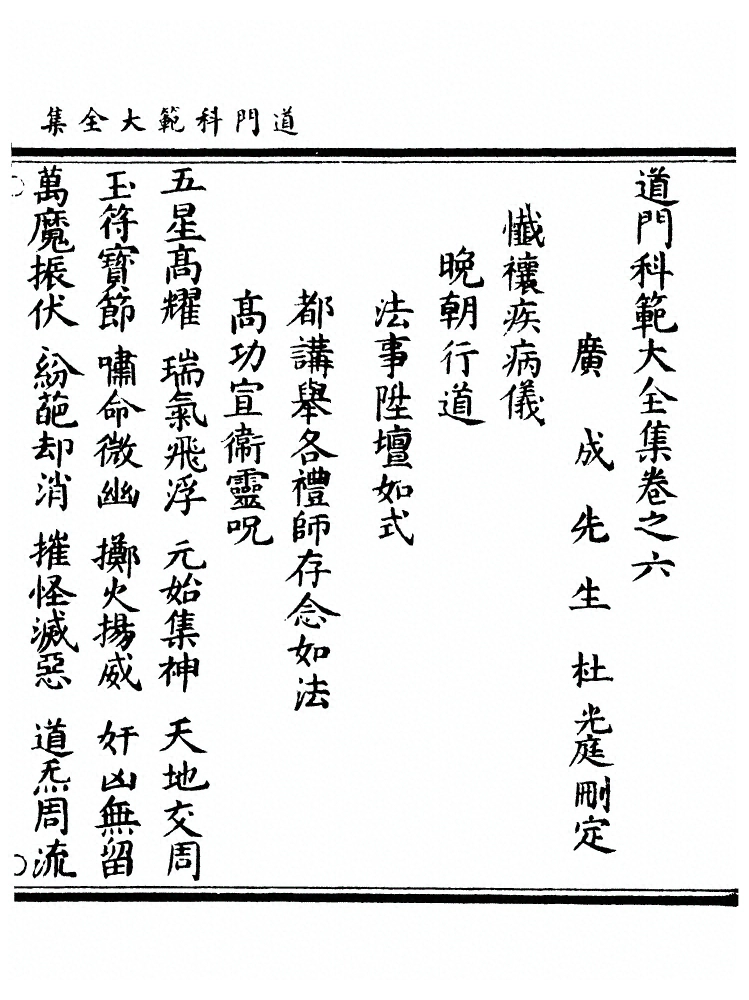 道門科範大全集
道門科範大全集卷之六
廣成先生杜光庭刪定
懺禳疾病儀
晚朝行道
法事陞壇如式
都講舉各禮師存念如法
高功宣衞靈呪
五星髙耀 瑞氣飛浮 元始集神 天地交周
玉符寶節 嘯命微幽 擲火揚威 奸凶無留
萬魔振伏 紛葩却消 摧怪滅惡 道炁周流